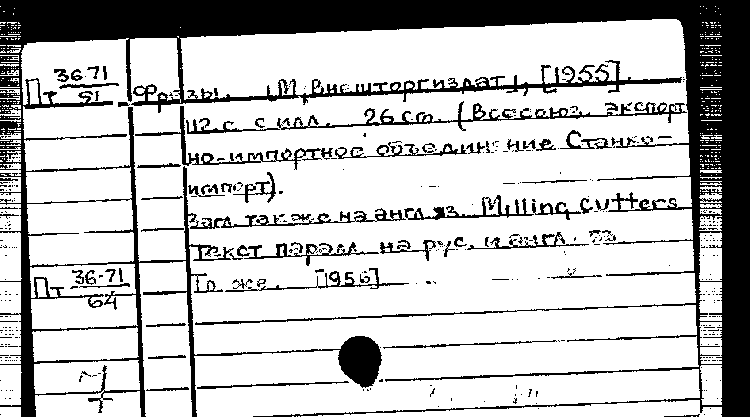 Пт 36-71/51 Фрезы. [М., Внешторгиздат], [1955].
112 с. с илл. 26 см. (Всесоюз. экспорт
но-импортное объединение Станко-
импорт).
Загл. также на англ. яз. Milling cutters
Текст паралл. на рус. и англ. яз.
Пт 36-71/64 То же. [1956]